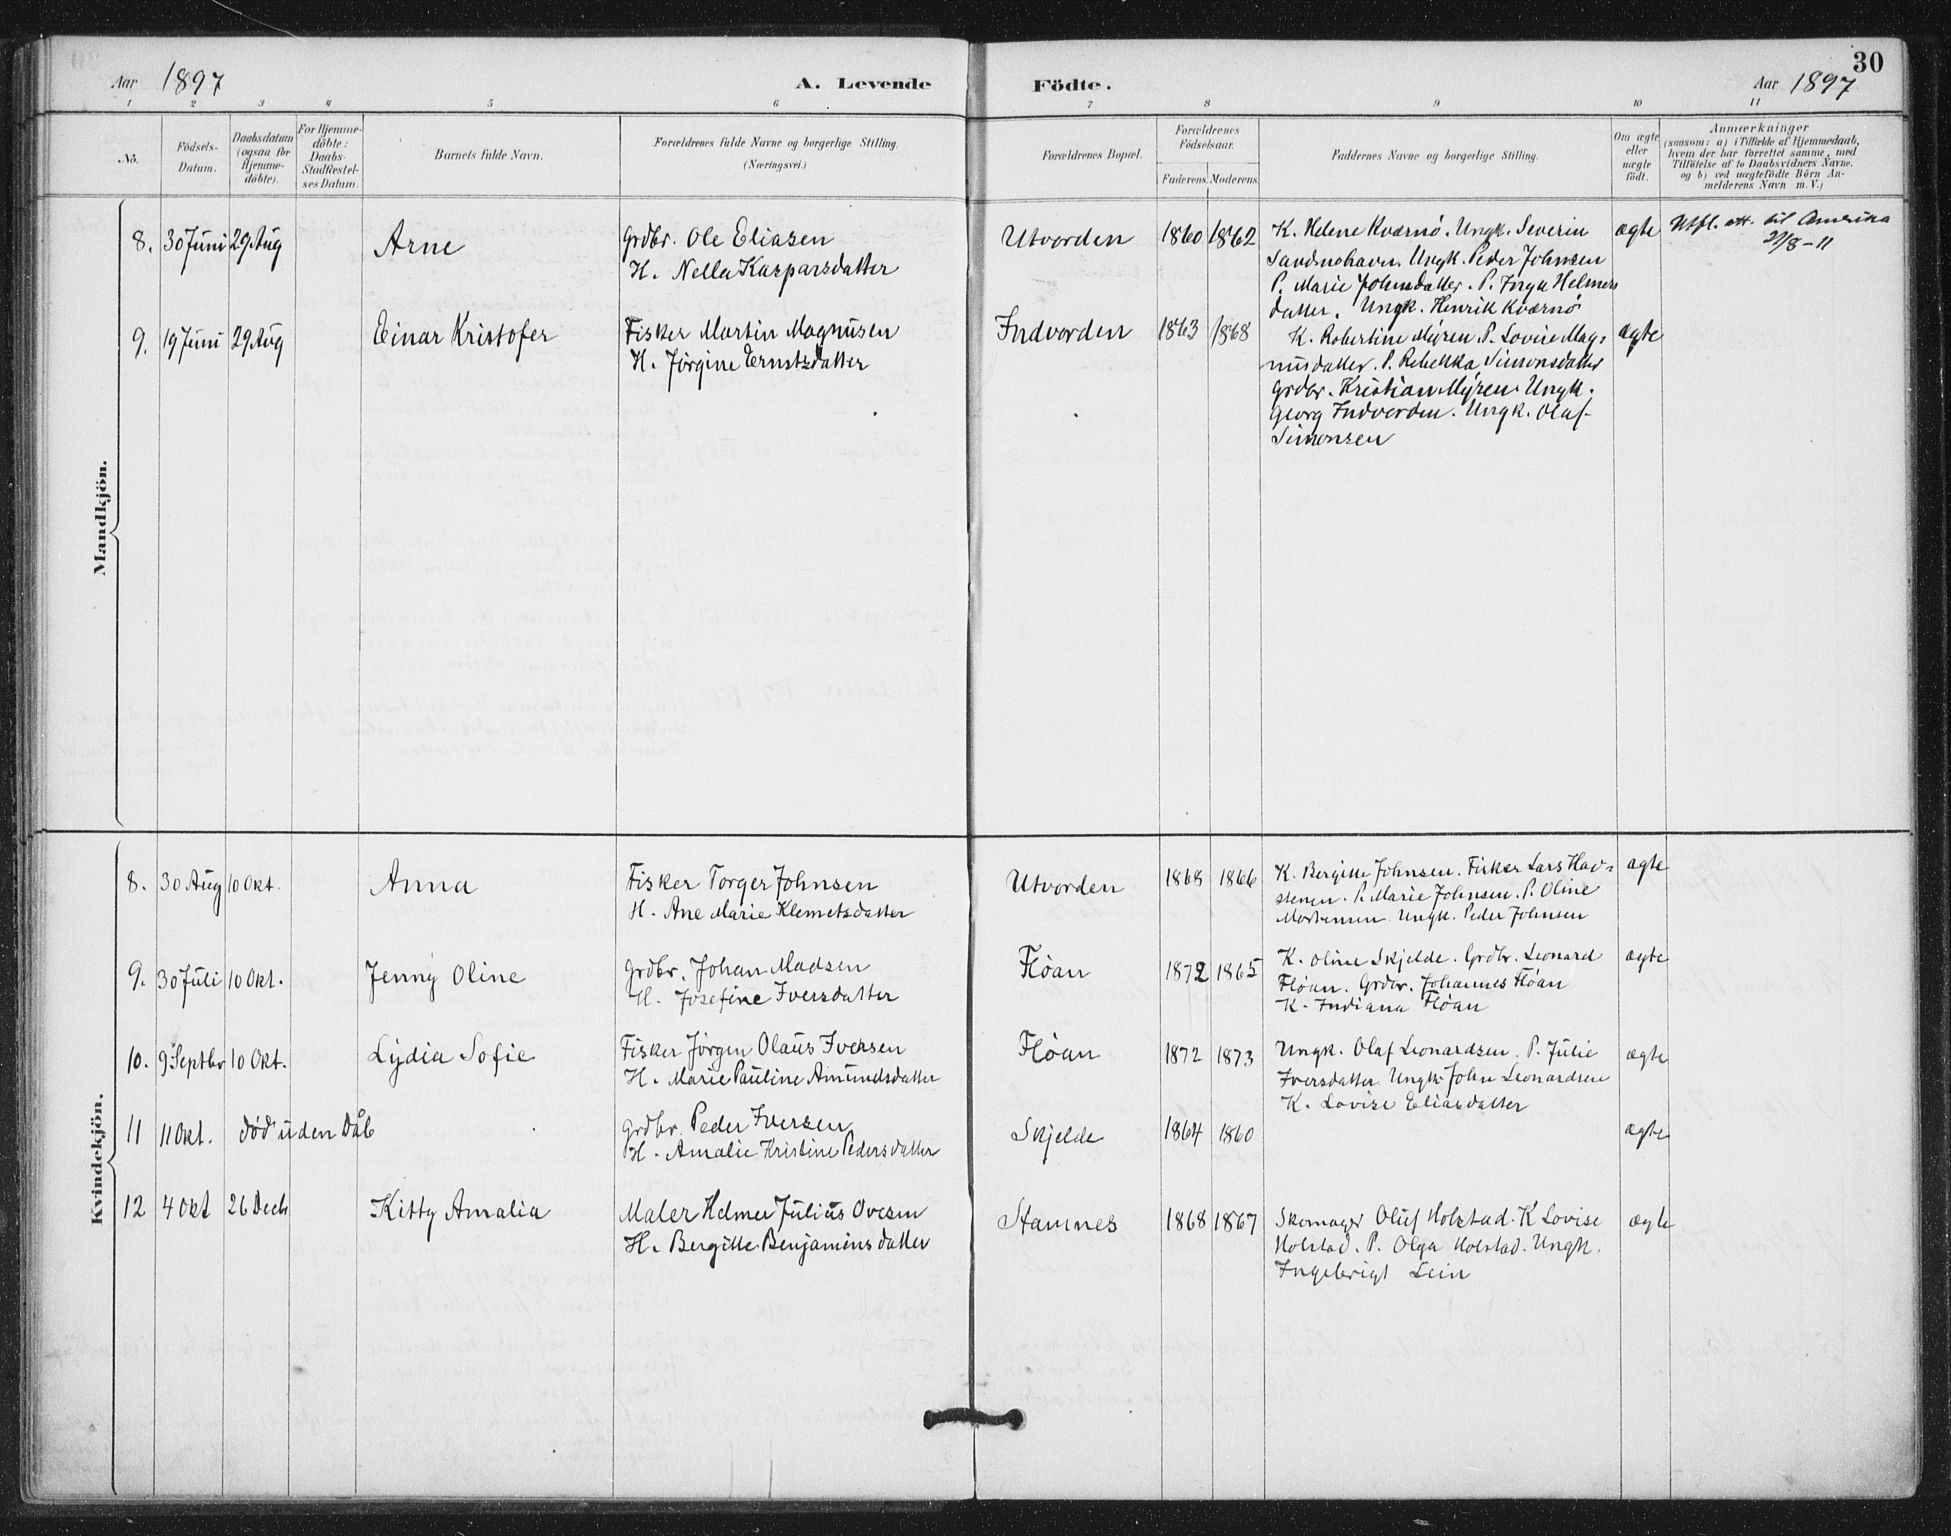 30
Aar 1897 A. Levende Födte. Aar 1897
1 2 3 4 5 6 7 8 9 10 11
Nö. Födsels-Datum. Daabsdatum (ogsaa for Hjemme-döbte). For Hjemme-döbte: Daabs-Stadfæstel-ses Datum. Barnets fulde Navn. Forældrenes fulde Navne og borgerlige Stilling. (Næringsvei.) Forældrenes Bopæl. Forældrenes Födselsaar. Faderens. Moderens. Faddernes Navne og borgerlige Stilling. Om ægte eller uægte födt. Anmærkninger (saasom: a) i Tilfælde af Hjemmedaab, hvem der har forrettet samme, med Tilföielse af to Daabsvidners Navne, og b) ved uægtefödte Börn An-melderens Navn m. V.)
Mandkjön.
8. 30 Juni 29 Aug Arne Grdbr. Ole Eliasen Utvorden 1860 1862 K. Helene Kværnø. Ungk. Severin ægte Utfl. att. til Amerika
H. Nella Kasparsdatter Sandnehavn. Ungk. Peder Johnsen 22/8-11
P. Marie Johnsdatter. P. Inga Helmers
datter. Ungk. Henrik Kværnø
9. 19 Juni 29 Aug Einar Kristofer Fisker Martin Magnusen Indvorden 1863 1868 K. Robertine Myren P. Lovise Mag- ægte
H. Jørgine Ernstsdatter nusdatter. P. Rebekka Simonsdatter
Grdbr. Kristian Myren. Ungk.
Georg Indvorden. Ungk. Olaf
Simonsen
Kvindekjön.
8. 30 Aug 10 Okt. Anna Fisker Torger Johnsen Utvorden 1868 1866 K. Bergitte Johnsen. Fisker Lars Hav- ægte
H. Ane Marie Klemetsdatter stenen. P. Marie Johnsen. P. Oline
Mortensen. Ungk. Peder Johnsen
9. 30 Juli 10 Okt. Jenny Oline Grdbr. Johan Madsen Fløan 1872 1865 K. Oline Skjelde. Grdbr. Leonard ægte
H. Josefine Iversdatter Fløan. Grdbr. Johannes Fløan
K. Indiana Fløan
10. 9 Septbr 10 Okt. Lydia Sofie Fisker Jørgen Olaus Iversen Fløan 1872 1873 Ungk. Olaf Leonardsen. P. Julie ægte
H. Marie Pauline Amundsdatter Iversdatter. Ungk. John Leonardsen
K. Lovise Eliasdatter
11 11 Okt. død uden Dåb Grdbr. Peder Iversen Skjelde 1864 1860 ægte
H. Amalie Kristine Pedersdatter
12 4 Okt 26 Decb Kitty Amalia Maler Helmer Julius Ovesen Stamnes 1868 1867 Skomager Oluf Holstad. K Lovise ægte
H. Bergitte Benjaminsdatter Holstad. P. Olga Holstad. Ungk.
Ingebrigt Lein